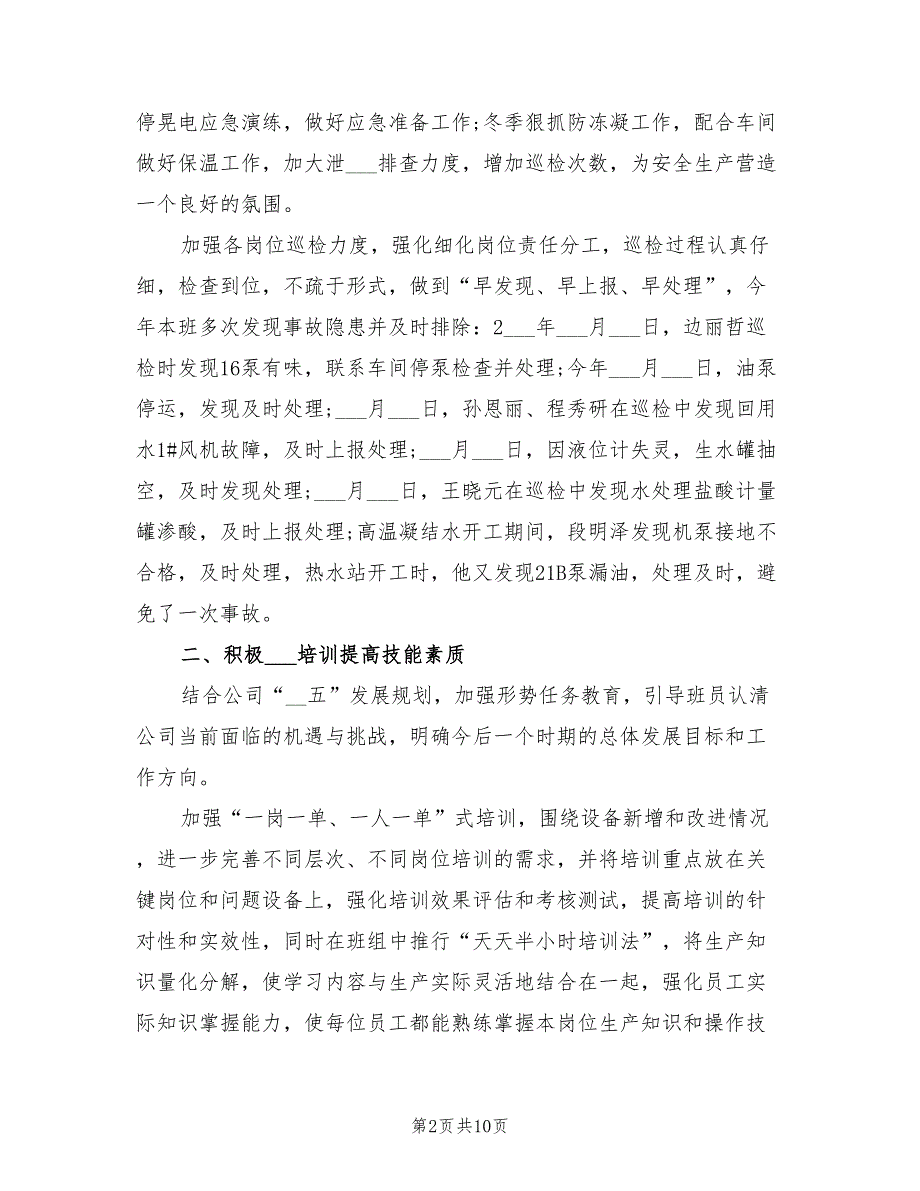 停晃电应急演练，做好应急准备工作;冬季狠抓防冻凝工作，配合车间
做好保温工作，加大泄___排查力度，增加巡检次数，为安全生产营造
一个良好的氛围。
加强各岗位巡检力度，强化细化岗位责任分工，巡检过程认真仔
细，检查到位，不疏于形式，做到“早发现、早上报、早处理”，今
年本班多次发现事故隐患并及时排除：2___年___月___日，边丽哲巡
检时发现16泵有味，联系车间停泵检查并处理;今年___月___日，油泵
停运，发现及时处理;___月___日，孙恩丽、程秀研在巡检中发现回用
水1#风机故障，及时上报处理;___月___日，因液位计失灵，生水罐抽
空，及时发现处理;___月___日，王晓元在巡检中发现水处理盐酸计量
罐渗酸，及时上报处理;高温凝结水开工期间，段明泽发现机泵接地不
合格，及时处理，热水站开工时，他又发现21B泵漏油，处理及时，避
免了一次事故。
二、积极___培训提高技能素质
结合公司“__五”发展规划，加强形势任务教育，引导班员认清
公司当前面临的机遇与挑战，明确今后一个时期的总体发展目标和工
作方向。
加强“一岗一单、一人一单”式培训，围绕设备新增和改进情况
，进一步完善不同层次、不同岗位培训的需求，并将培训重点放在关
键岗位和问题设备上，强化培训效果评估和考核测试，提高培训的针
对性和实效性，同时在班组中推行“天天半小时培训法”，将生产知
识量化分解，使学习内容与生产实际灵活地结合在一起，强化员工实
际知识掌握能力，使每位员工都能熟练掌握本岗位生产知识和操作技
第2页共10页